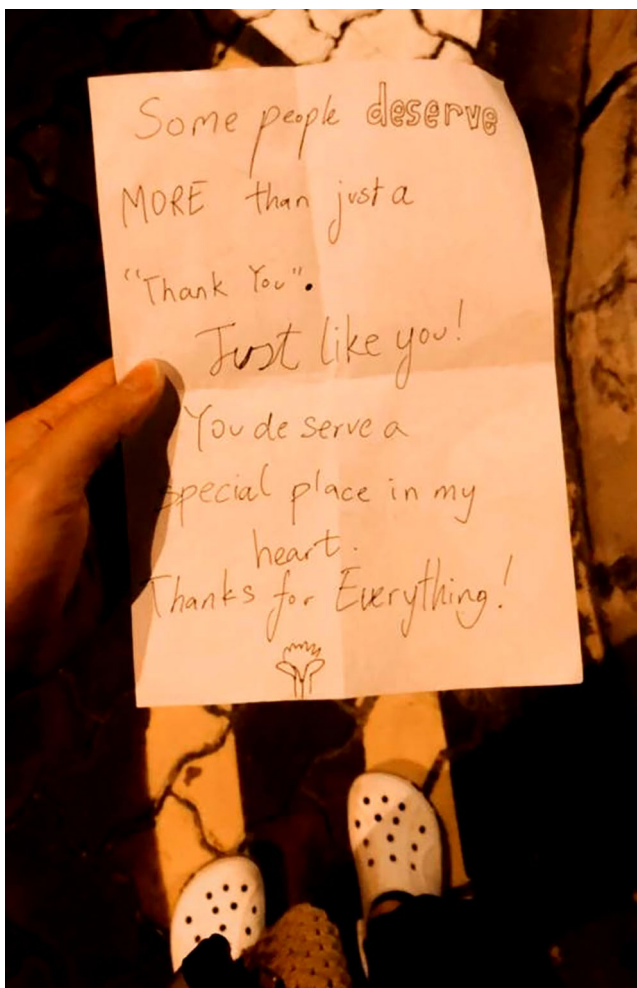 Some people deserve
MORE than just a
"Thank You".
Just like you!
You deserve a
special place in my
heart.
Thanks for Everything!